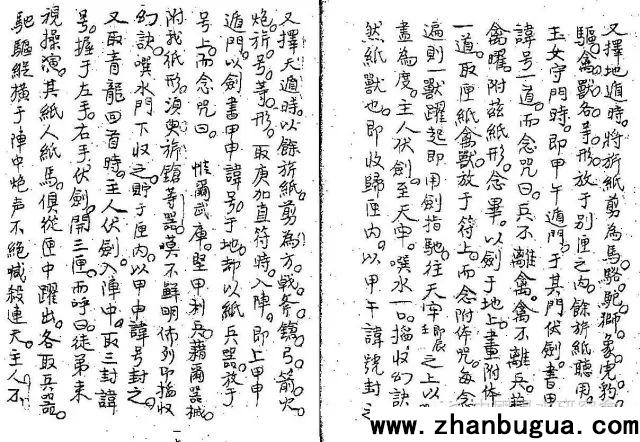 又擇地遁時。將旂紙剪為馬駱駝獅象虎豹。
驅禽獸各等形放于別匣之內。餘旂紙聽用
玉女守門時。即甲午遁門。于其門伏劍。書甲
諱号一道。而念咒曰。兵不離禽。禽不離兵。
禽曜。附茲紙形。念畢。以劍于地上畫附体
一道。取匣紙禽獸放于符上。而念附体咒。每念
遍則一獸躍起。即用劍指馳往天宇
盡為度。主人伏劍至天中。噀水一口。搯收幻訣
然紙獸也。即收歸匣內。以甲午諱號封之
又擇天遁時。以餘旂紙剪為方戟斧鎗弓箭火
炮旂号等形。取庚加直符時。入陣。即上甲申
遁門。以劍書甲申諱号于地。却以紙兵器放于
号上。而念咒曰 惟爾武庫。堅甲利兵。藉爾器械
附我紙形。須臾旂鎗等器。莫不鮮明。佈列印搯收
幻訣。噀水門下。收之。貯于匣內。以甲申諱号封之。
又取青龍回首時。主人伏劍。入陣中。取三封諱
号。握于左手。右手伏劍開三匣。而呼曰。徒弟來
視操演。其紙人紙馬俱從匣中躍出。各取兵器。
馳驅縱橫于陣中。炮声不絕。喊殺連天。主人不
www.zhanbugua.com